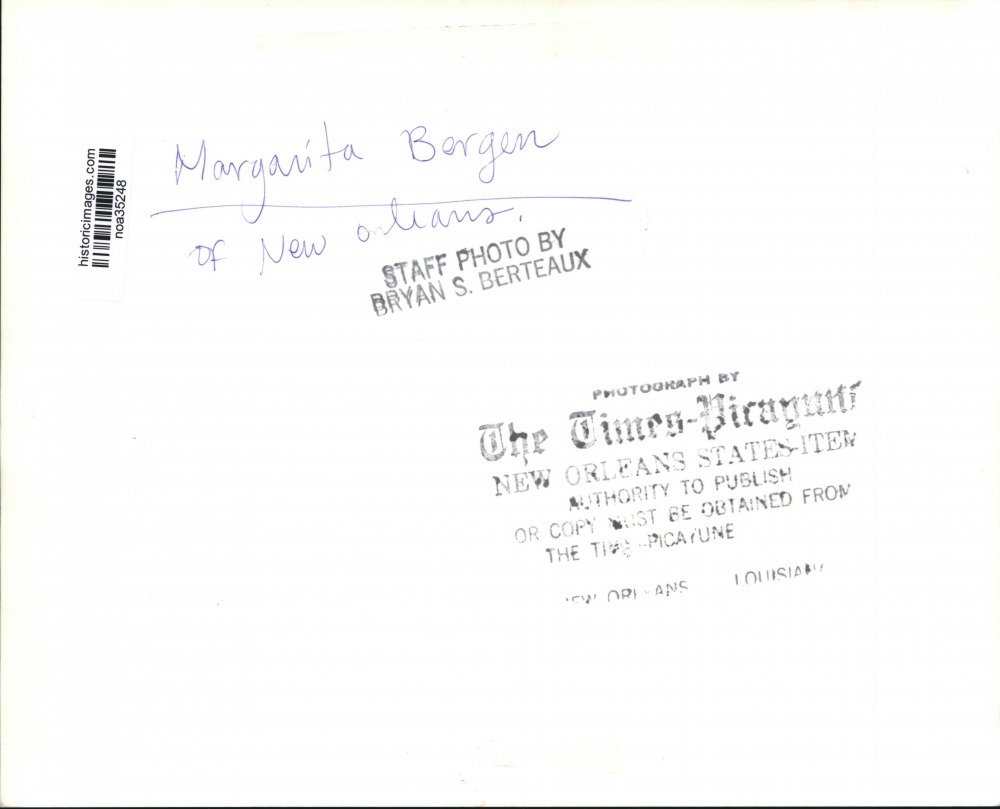 historicimages.com
noa35248
Margarita Bergen
of New Orleans.
STAFF PHOTO BY
BRYAN S. BERTEAUX
PHOTOGRAPH BY
The Times-Picayune
NEW ORLEANS STATES-ITEM
AUTHORITY TO PUBLISH
OR COPY MUST BE OBTAINED FROM
THE TIMES-PICAYUNE
NEW ORLEANS LOUISIANA